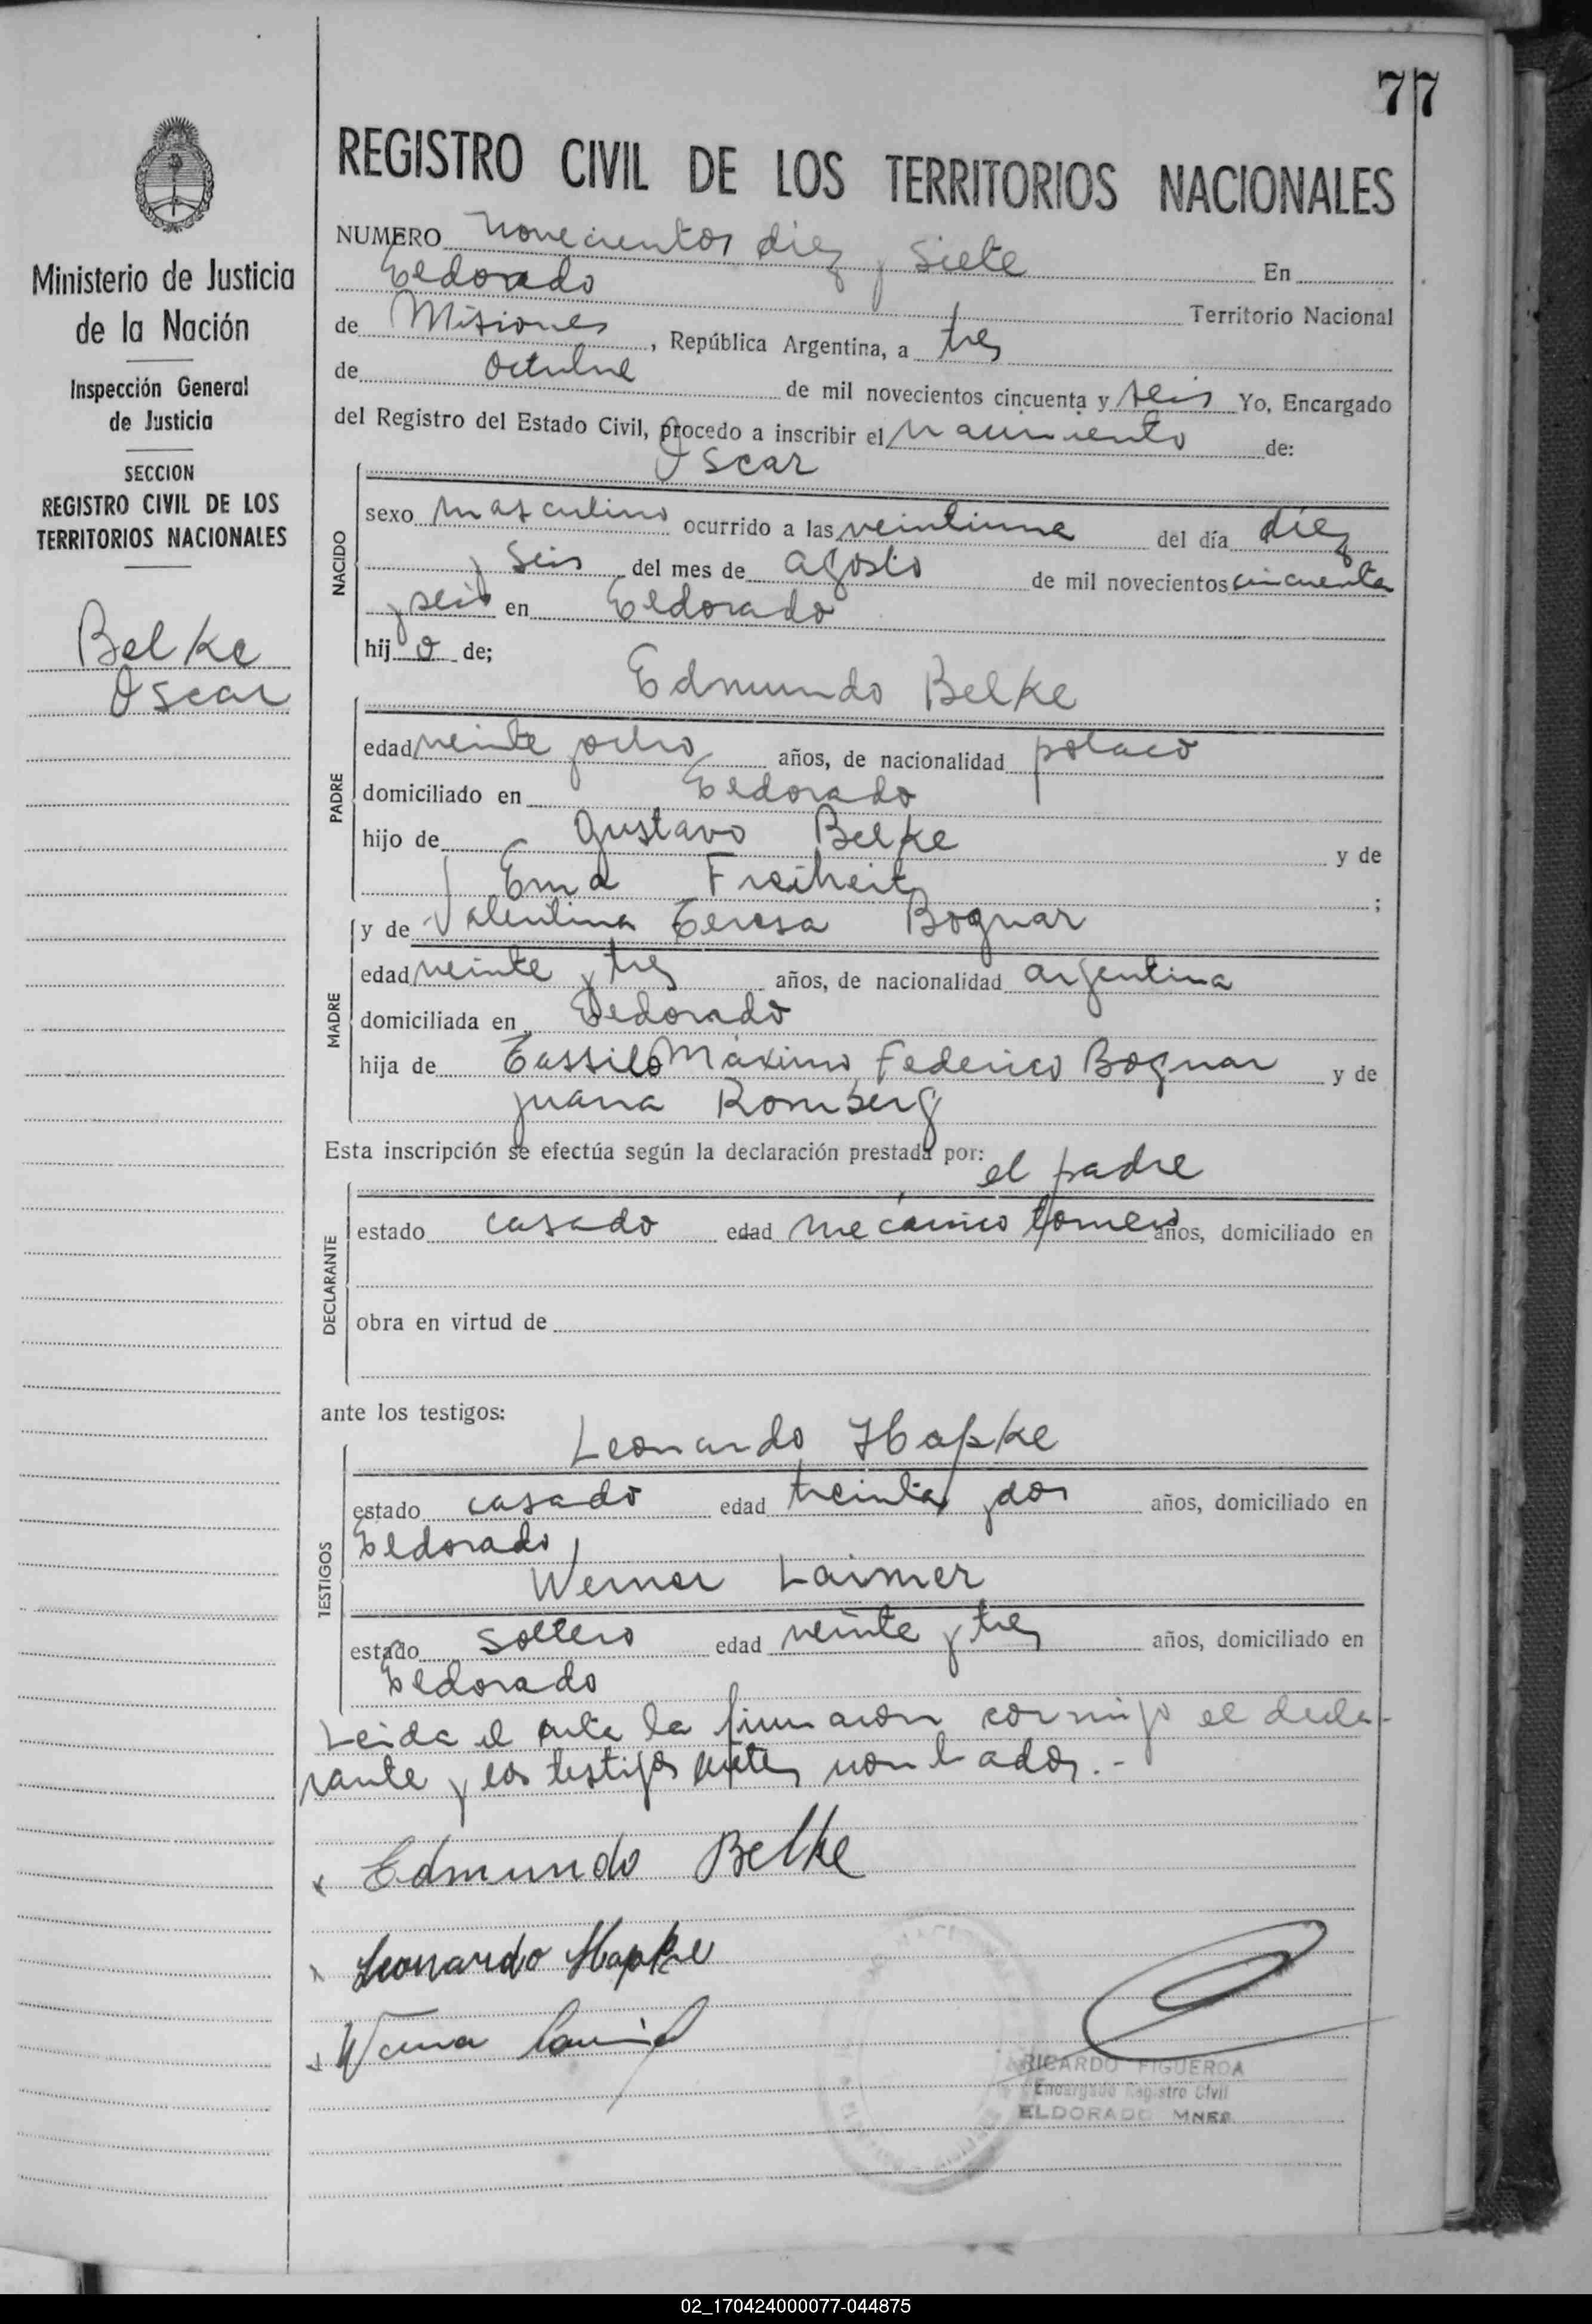 77
REGISTRO CIVIL DE LOS TERRITORIOS NACIONALES
Ministerio de Justicia
de la Nación
Inspección General
de Justicia
SECCION
REGISTRO CIVIL DE LOS
TERRITORIOS NACIONALES
Belke
Oscar
NUMERO novecientos diez y siete En
Eldorado Territorio Nacional
de Misiones, República Argentina, a tres
de octubre de mil novecientos cincuenta y seis Yo, Encargado
del Registro del Estado Civil, procedo a inscribir el nacimiento de:
Oscar
NACIDO
sexo masculino ocurrido a las veintiuna del día diez
y seis del mes de agosto de mil novecientos cincuenta
y seis en Eldorado
hijo de;
Edmundo Belke
PADRE
edad veinte y ocho años, de nacionalidad polaco
domiciliado en Eldorado
hijo de Gustavo Belke y de
Ema Freiheit;
y de Valentina Teresa Bognar
MADRE
edad veinte y tres años, de nacionalidad argentina
domiciliada en Eldorado
hija de Tassilo Máximo Federico Bognar y de
Juana Romberg
Esta inscripción se efectúa según la declaración prestada por:
el padre
DECLARANTE
estado casado edad mecánico tornero años, domiciliado en
obra en virtud de
ante los testigos:
Leonardo Hapke
TESTIGOS
estado casado edad treinta y dos años, domiciliado en
Eldorado
Werner Laimer
estado soltero edad veinte y tres años, domiciliado en
Eldorado
Leida el acta la firmaron conmigo el decla-
rante y los testigos antes nombados.-
x Edmundo Belke
x Leonardo Hapke
x Werner
RICARDO FIGUEROA
Encargado Registro Civil
ELDORADO MNES.
02_170424000077-044875